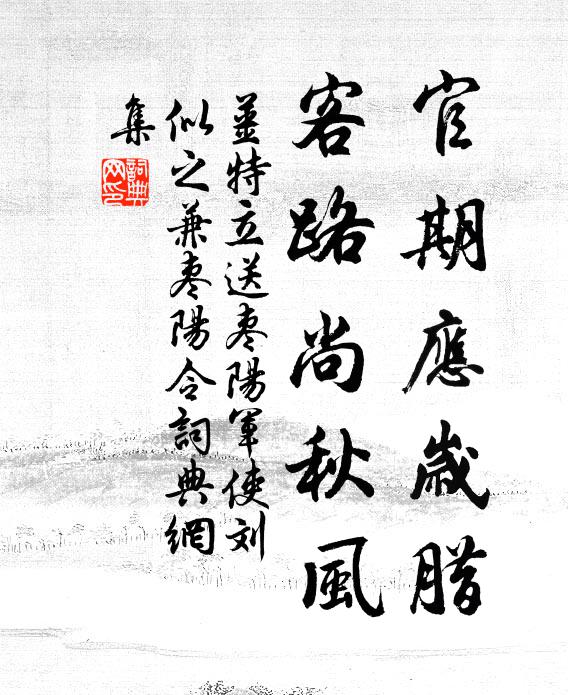 官期應歲腊
客路尚秋風
薑特立送枣陽軍使刘
似之兼枣陽令詞典網
集
詞典
网印